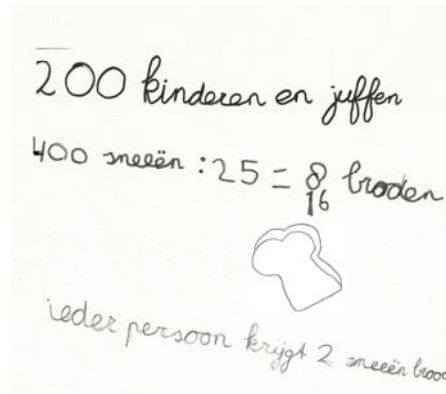 200 kinderen en juffen
400 sneeën : 25 = 8 broden
16
ieder persoon krijgt 2 sneeën brood